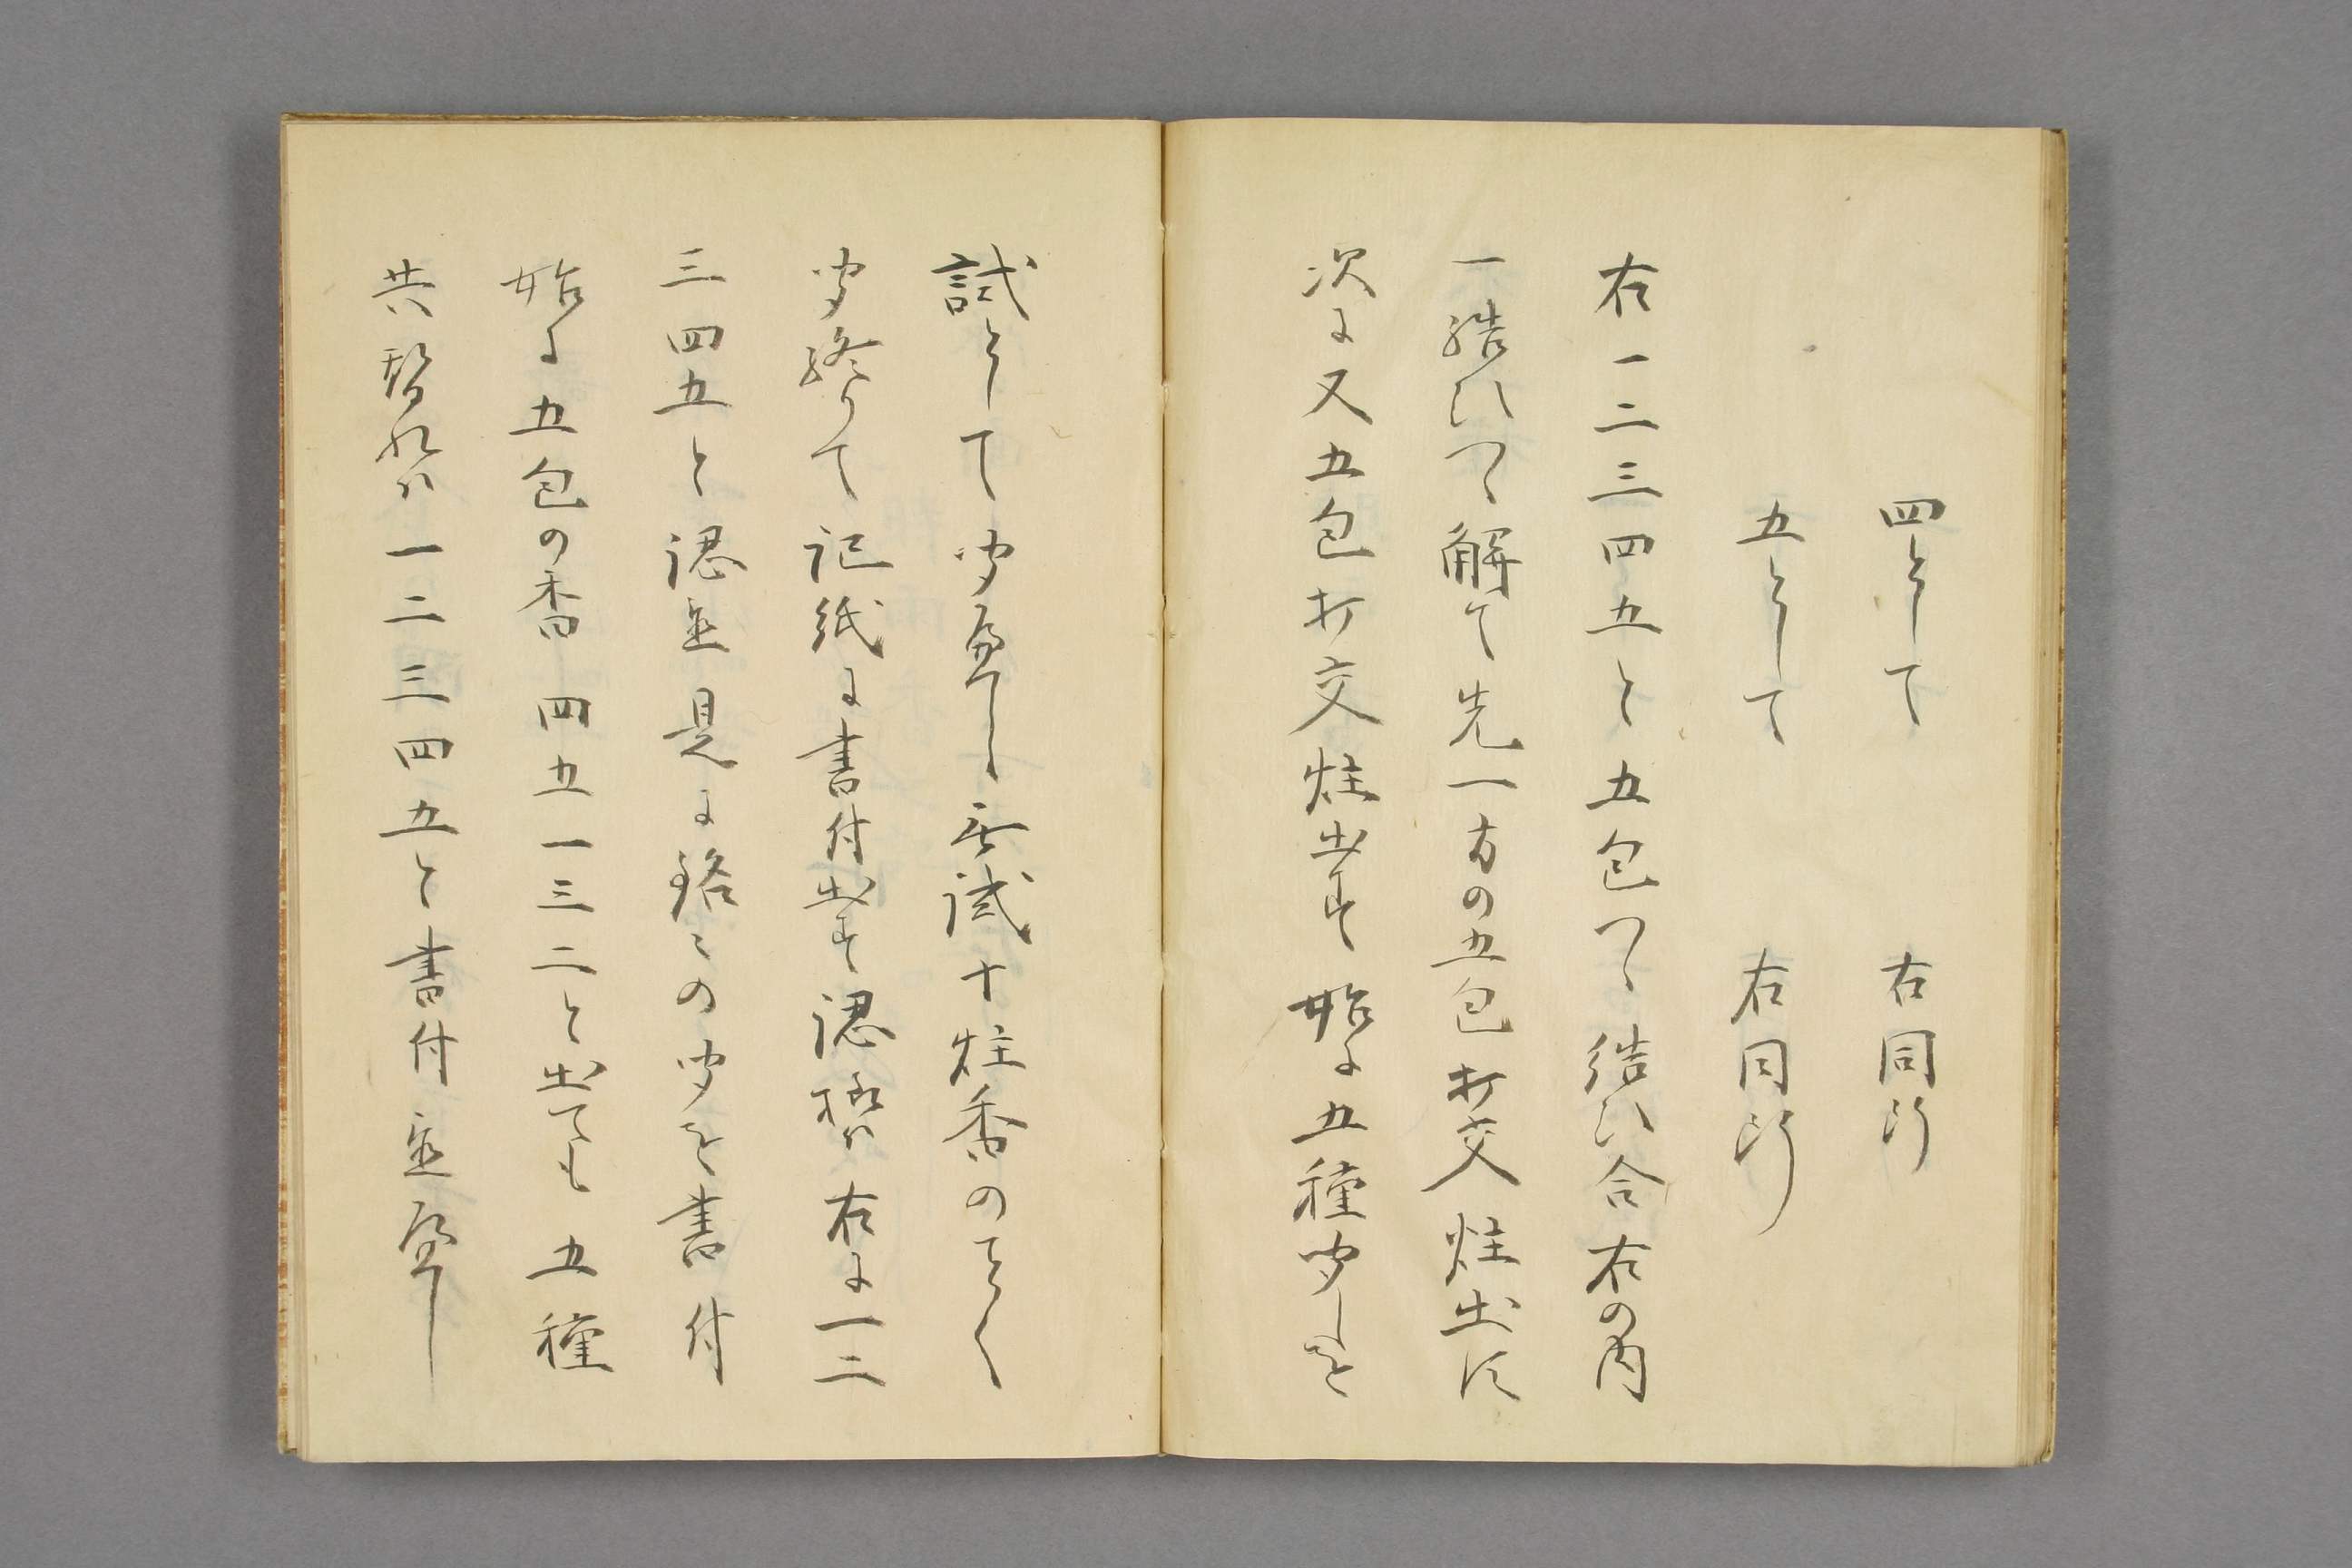 四として　右同断
五として　右同断
右一二三四五と五包つゝ結ひ合右の内
一結ひつゝ解て先一方の五包打交炷出し
次に又五包打交炷出す始に五種聞しを
試として聞へし無試十炷香のことく
聞終りて記紙に書付出す認様ハ右に一二
三四五と認置見に銘々の聞を書付
始に五包の香四五一三二と出ても五種
共替れハ一二三四五と書付置へし